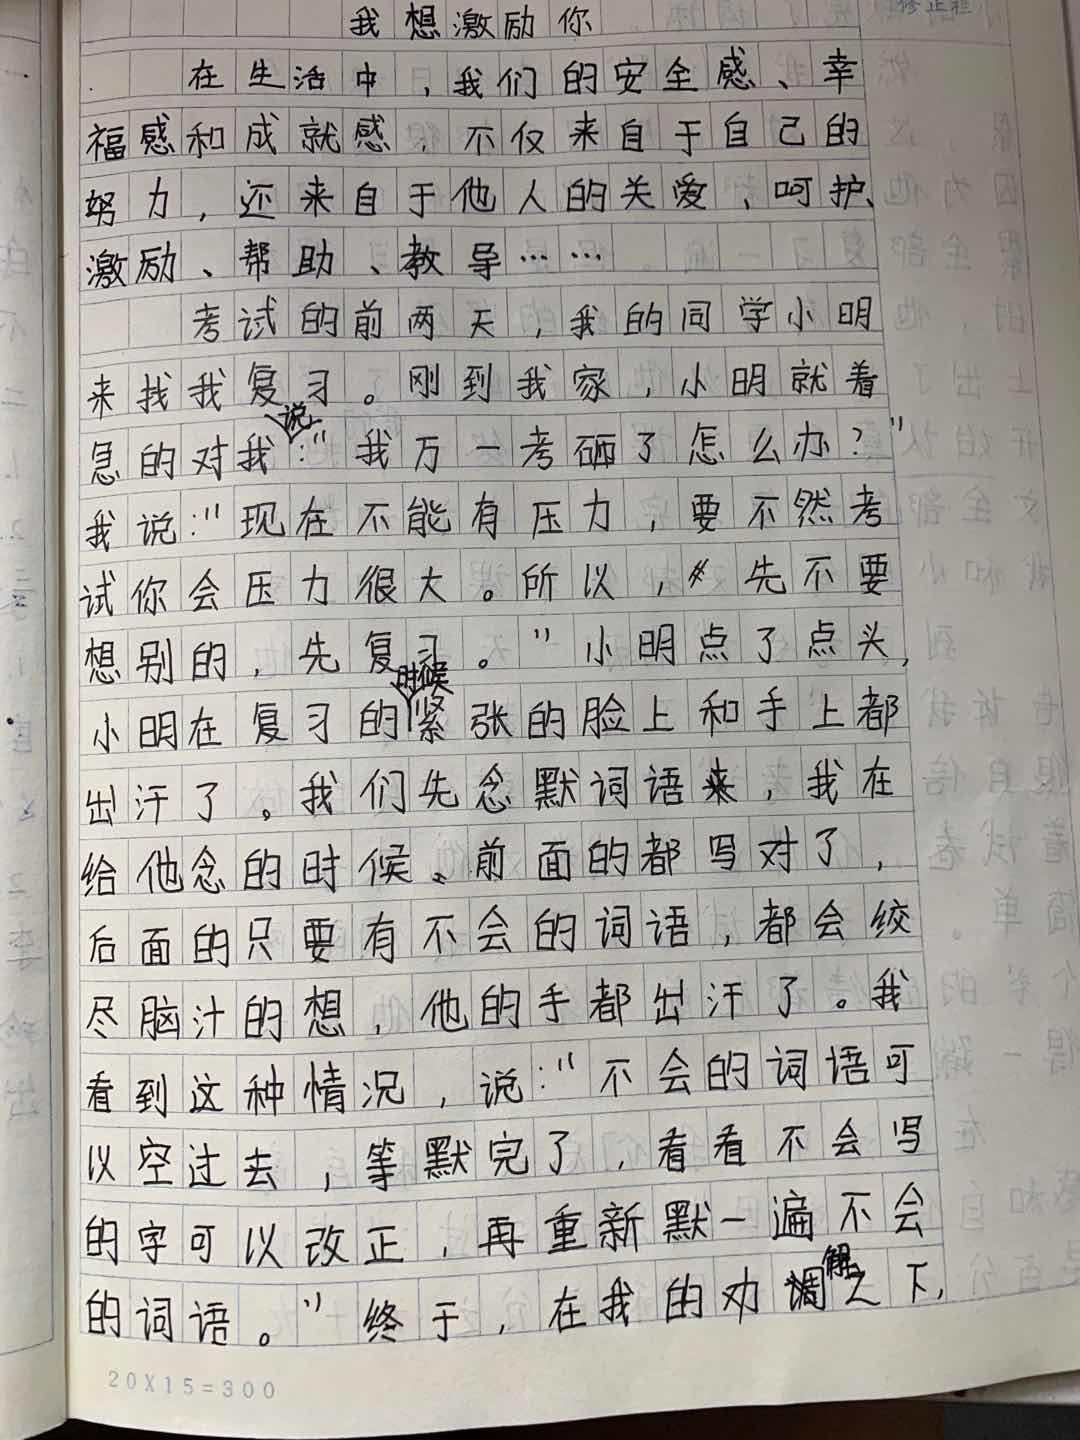 修正栏
我想激励你
在生活中，我们的安全感、幸
福感和成就感，不仅来自于自己的
努力，还来自于他人的关爱、呵护、
激励、帮助、教导……
考试的前两天，我的同学小明
来找我复习。刚到我家，小明就着
急的对我说："我万一考砸了怎么办？"
我说："现在不能有压力，要不然考
试你会压力很大。所以，先不要
想别的，先复习。"小明点了点头，
小明在复习的时候紧张的脸上和手上都
出汗了。我们先念默词语来，我在
给他念的时候、前面的都写对了，
后面的只要有不会的词语，都会绞
尽脑汁的想，他的手都出汗了。我
看到这种情况，说："不会的词语可
以空过去，等默完了，看看不会写
的字可以改正，再重新默一遍不会
的词语。"终于，在我的劝解之下，
20X15=300